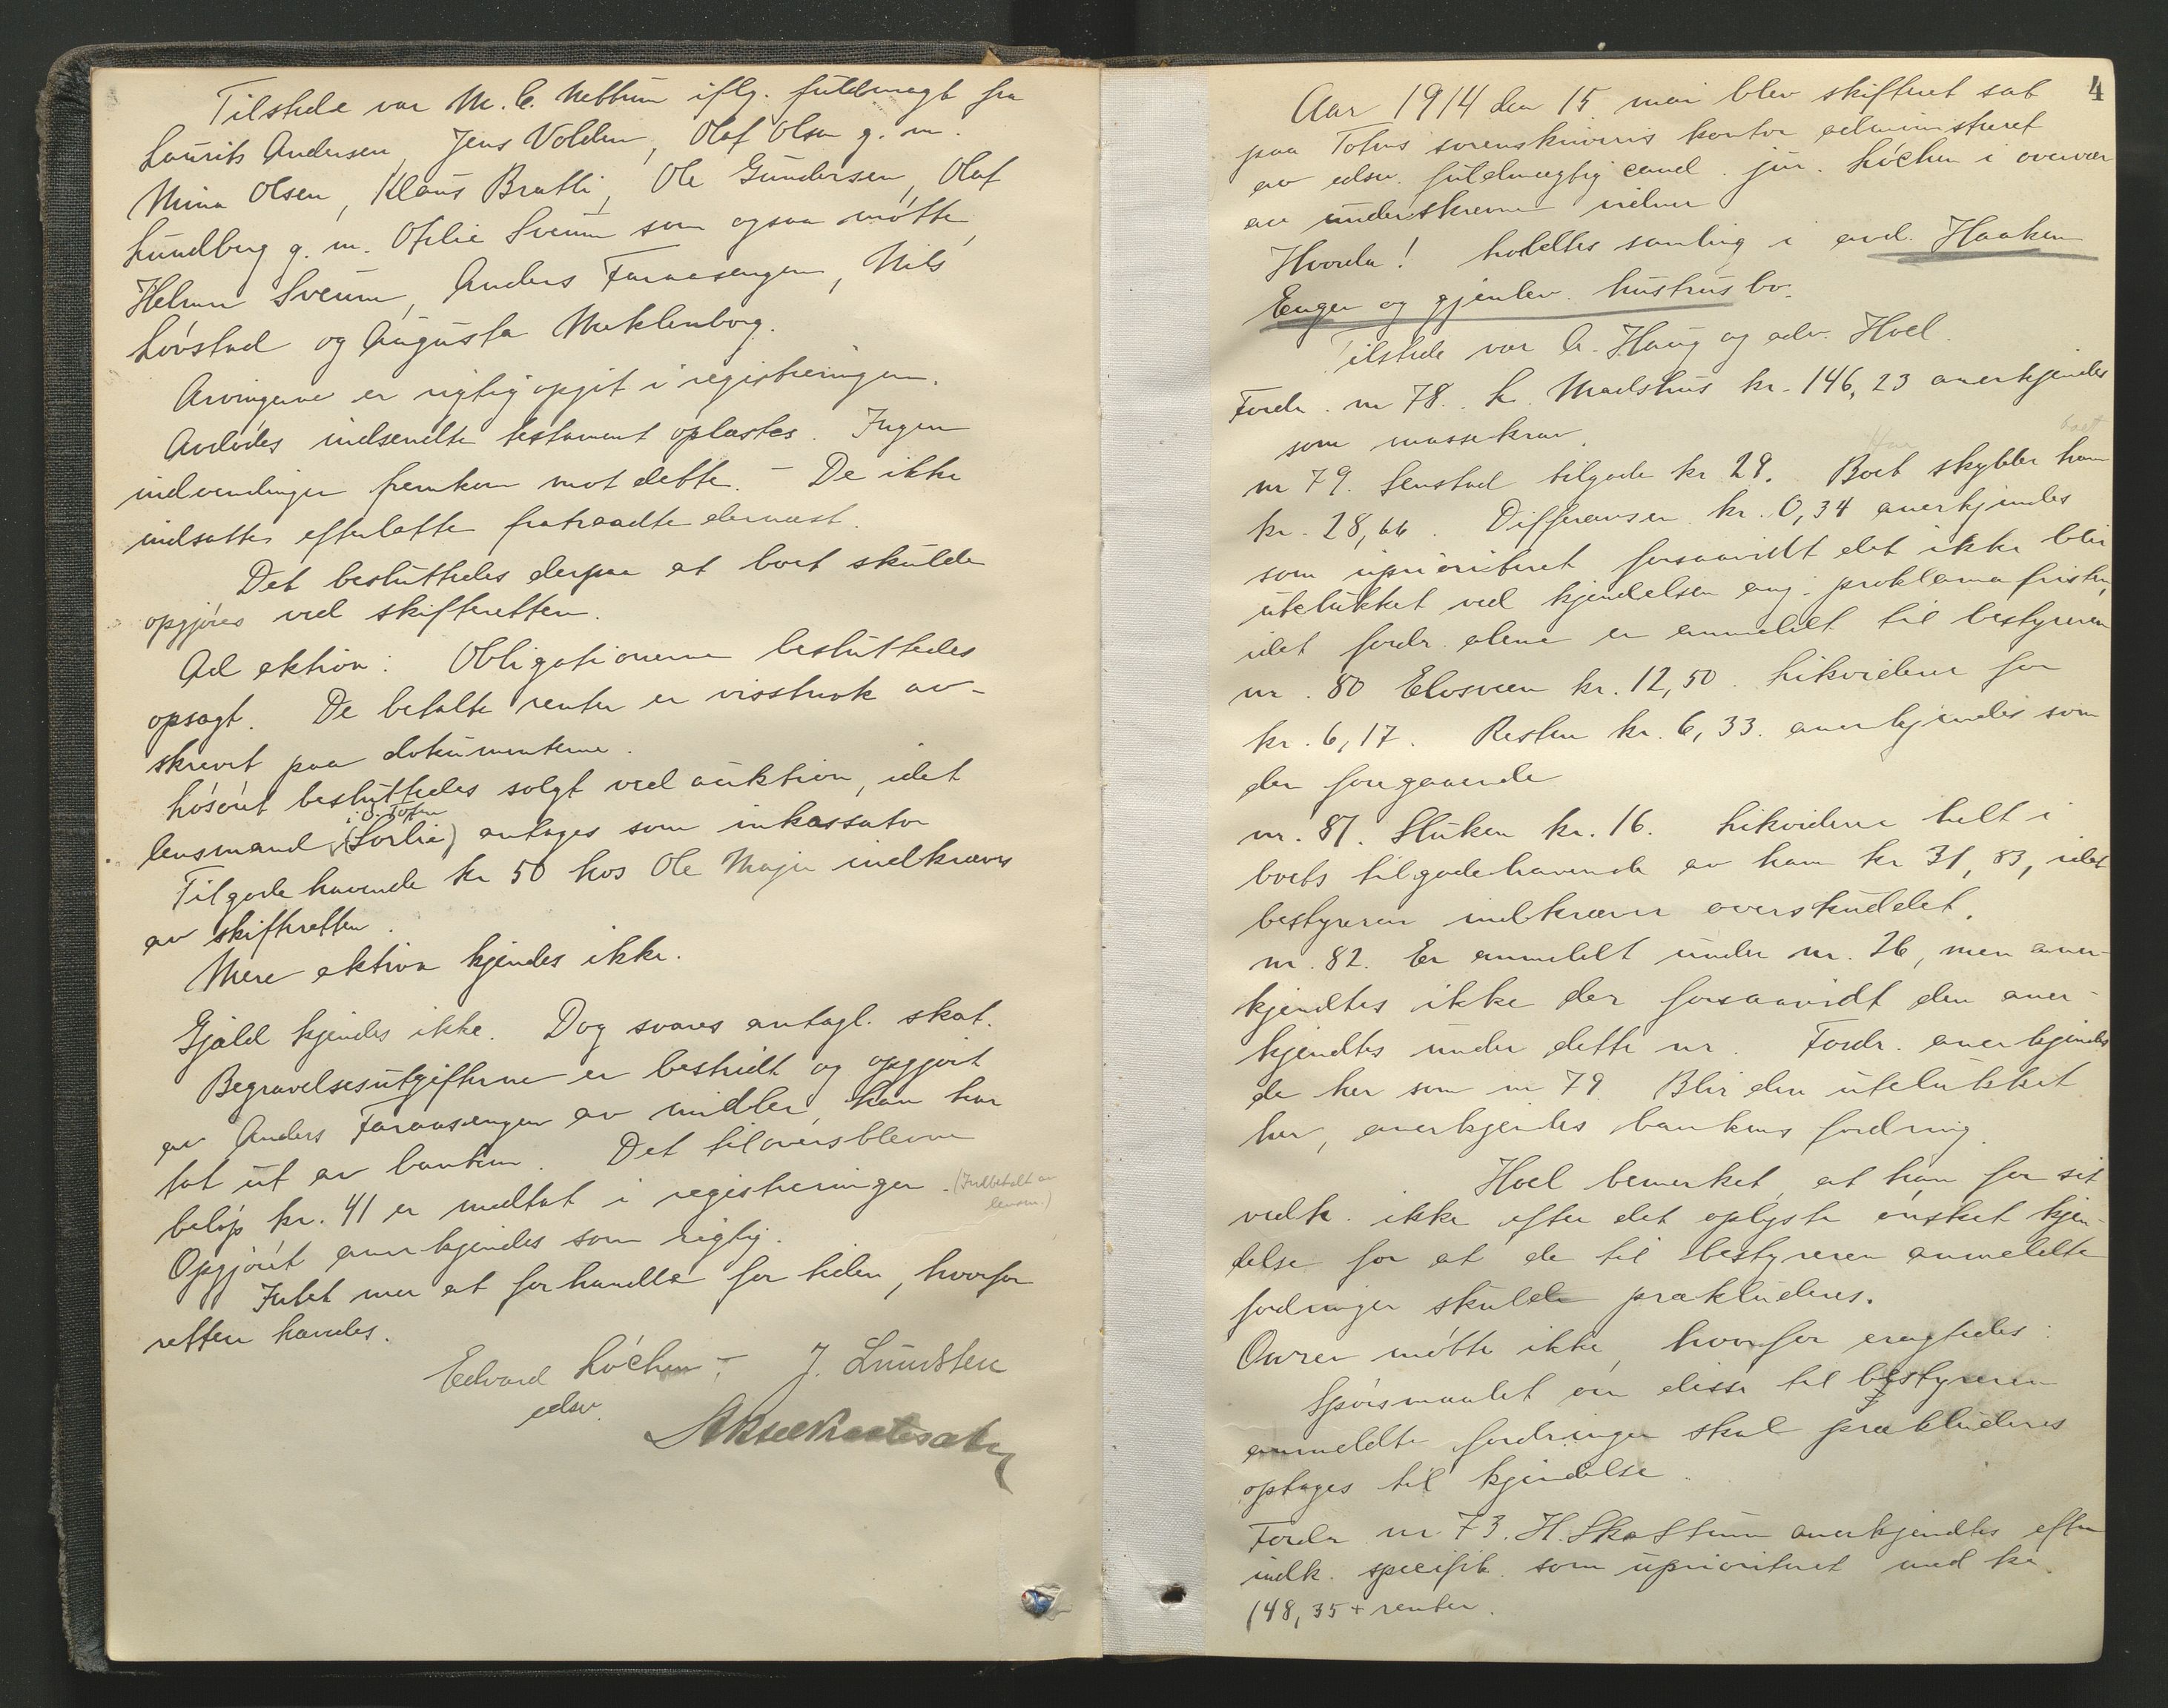 Tilstede var M. C. Nettum iflg. fuldmagt fra
Laurits Andersen, Jens Volden, Olaf Olsen g. m.
Mina Olsen, Klaus Bratli, Ole Gundersen, Olaf
Lundberg g. m. Ofelie Sveum som ogsaa møtte,
Helmer Sveum, Anders Faraasengen, Nils
Løvstad og Augusta Meklenborg.
Arvingerne er rigtig opgit i registreringen.
Avdødes indsendte testament oplæstes. Ingen
indvendinger fremkom mot dette. – De ikke
indsatte efterlatte fratraadte dernæst.
Det besluttedes derpaa at boet skulde
opgjøres ved skifteretten.
Ad aktiva: Obligationerne besluttedes
opsagt. De betalte renter er visstnok av-
skrevet paa dokumenterne.
Løsøret besluttedes solgt ved auktion, idet
i Ø. Toten
lensmand (Sørlie) antages som inkassator
Tilgodehavende kr 50 hos Ole Majer indkræves
av skifteretten.
Mere aktiva kjendes ikke.
Gjæld kjendes ikke. Dog svares antagl. skat.
Begravelsesutgifterne er bestridt og opgjort
av Anders Faraasengen av midler, han har
tat ut av banken. Det tiloversblevne
beløp kr. 41 er medtat i registreringen. (Indbetalt av
lensm.)
Opgjøret anerkjendes som rigtig.
Intet mer at forhandle for tiden, hvorfor
retten hævdes.
Edvard Løchen – J. Lundsten
edsv.
Aar 1914 den 15 mai blev skifteret sat 4
paa Totens sorenskriveris kontor administreret
av edsv. fuldmægtig cand. jur. Løchen i overvær
av underskrevne vidner
Hvorda! holdtes samling i avd. Haaken
Enger og gjenlev. hustrus bo.
Tilstede var A. Haug og adv. Hoel.
Fordr. nr 78. L. Madshus kr. 146,23 anerkjendes
som massekrav.
nr 79. Senstad tilgode kr 29. Boet skylder ham
kr. 28,66. Differansen kr. 0,34 anerkjendes
som uprioritert forsaavidt det ikke blir
utelukket ved kjendelsen ang. proklamafristen,
idet fordr. alene er anmeldt til bestyreren
nr. 80 Elvsveen kr. 12,50. Likvideres for
kr. 6,17. Resten kr. 6,33. anerkjendes som
den foregaaende
nr. 81. Sluken kr. 16. Likvideres helt i
boets tilgodehavende av ham kr 31,83, idet
bestyreren indkræver overskuddet.
nr. 82. Er anmeldt under nr. 26, men aner-
kjendtes ikke der forsaavidt den aner-
kjendtes under dette nr. Fordr. anerkjendes
da her som nr 79. Blir den utelukket
her, anerkjendes bankens fordring.
Hoel bemerket, at han for sit
vedk. ikke efter det oplyste ønsket kjen-
delse for at de til bestyreren anmeldte
fordringer skulde prækluderes.
Owren møtte ikke, hvorfor eragtedes:
Spørsmaalet om disse til bestyreren
anmeldte fordringer skal prækluderes
optages til kjendelse.
Fordr nr 73. H. Skattum anerkjendtes efter
indk. specifik. som uprioriteret med kr
148,35 + renter.